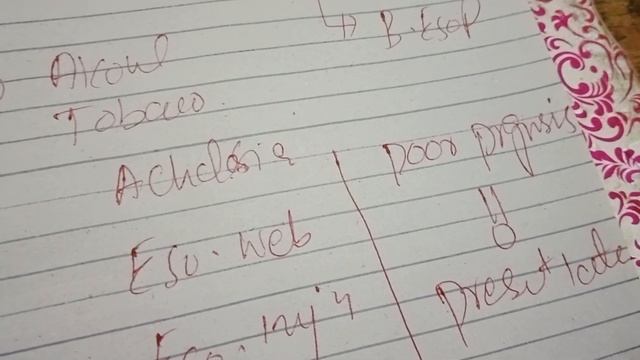 B. Esop
Alcoul
Tobacco
Achclasia
Eso. web
Eso. inj'y
poor prgnsis
presnt late